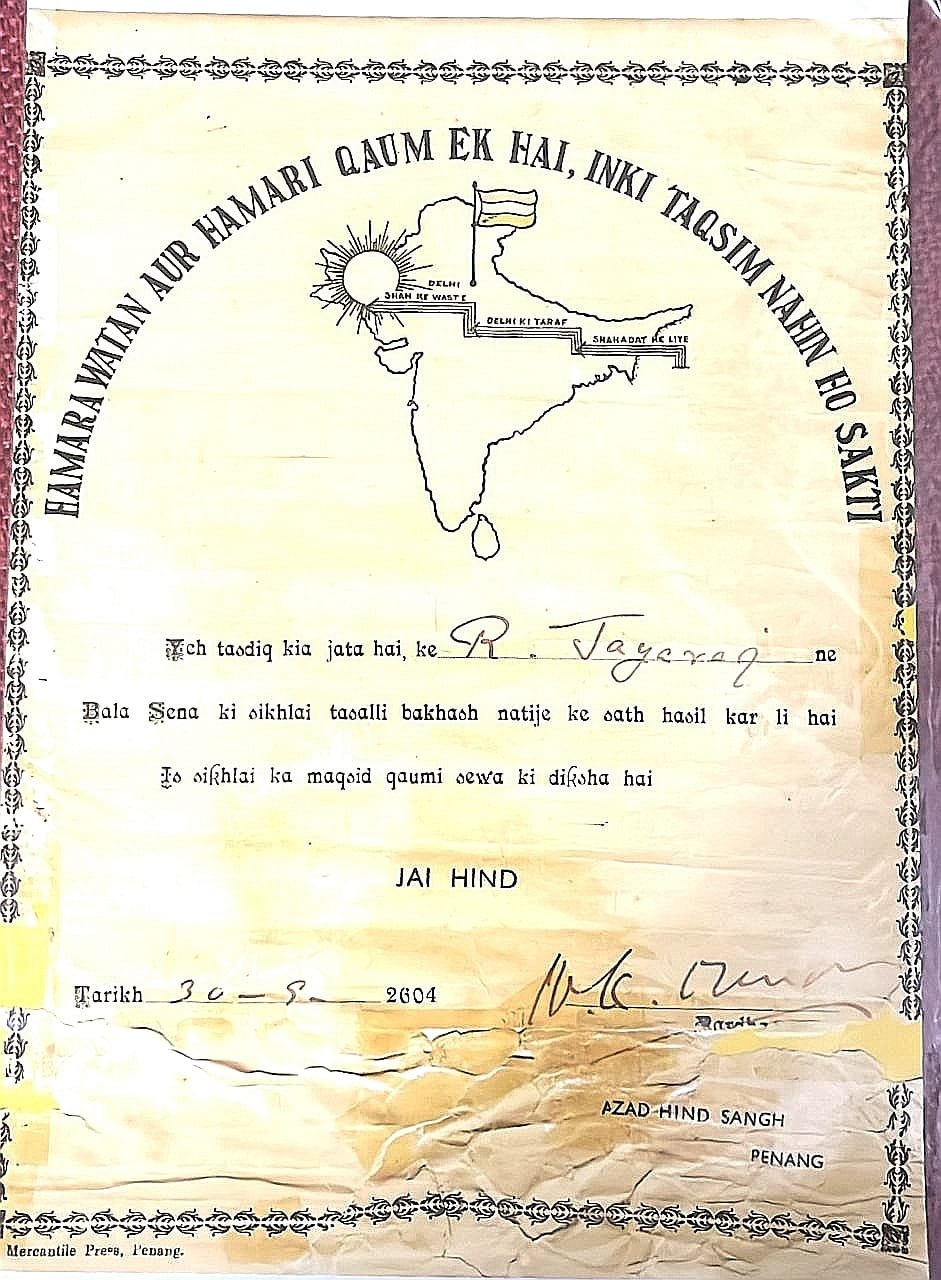 HAMARA WATAN AUR HAMARI QAUM EK HAI, INKI TAQSIM NAHIN HO SAKTI
DELHI
SHAN KE WASTE
DELHI KI TARAF
SHAHADAT KE LIYE
Yeh tasdiq kia jata hai, ke R. Jayaraj ne
Bala Sena ki sikhlai tasalli bakhash natije ke sath hasil kar li hai
Is sikhlai ka maqsid qaumi sewa ki diksha hai
JAI HIND
Tarikh 30-9- 2604
N.K. Menon
AZAD HIND SANGH
PENANG
Mercantile Press, Penang.